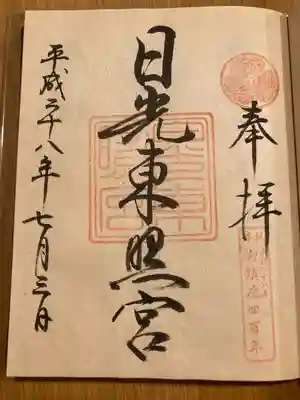 奉拝
日光東照宮
平成二十八年七月三日
御鎮座四百年